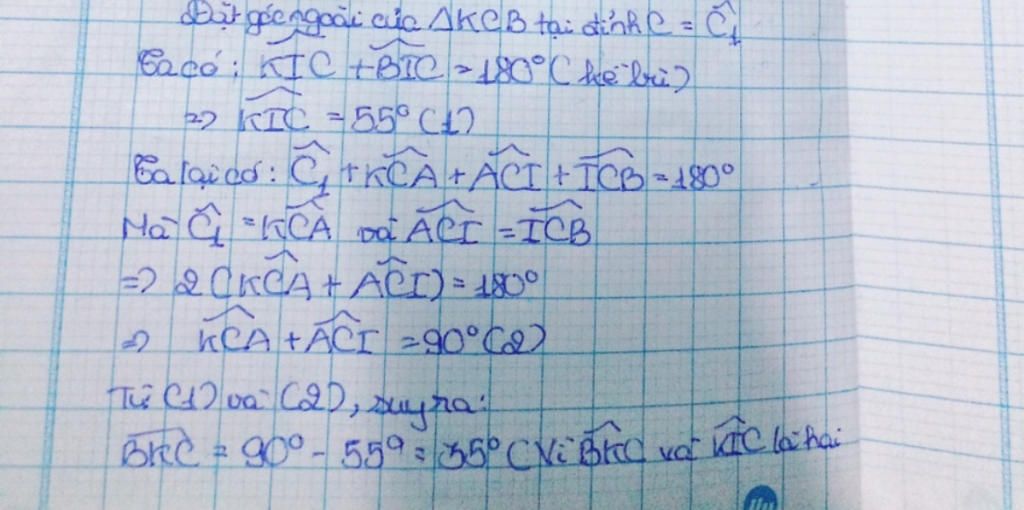 Đặt góc ngoài của ΔKCB tại đỉnh C = Ĉ₁
Ta có: K̂IC + B̂IC = 180° (kề bù)
=> K̂IC = 55° (1)
Ta lại có: Ĉ₁ + K̂CA + ÂCI + ÎCB = 180°
Mà Ĉ₁ = K̂CA và ÂCI = ÎCB
=> 2(K̂CA + ÂCI) = 180°
=> K̂CA + ÂCI = 90° (2)
Từ (1) và (2), suy ra:
B̂KC = 90° - 55° = 35° (Vì B̂KC và K̂IC là hai